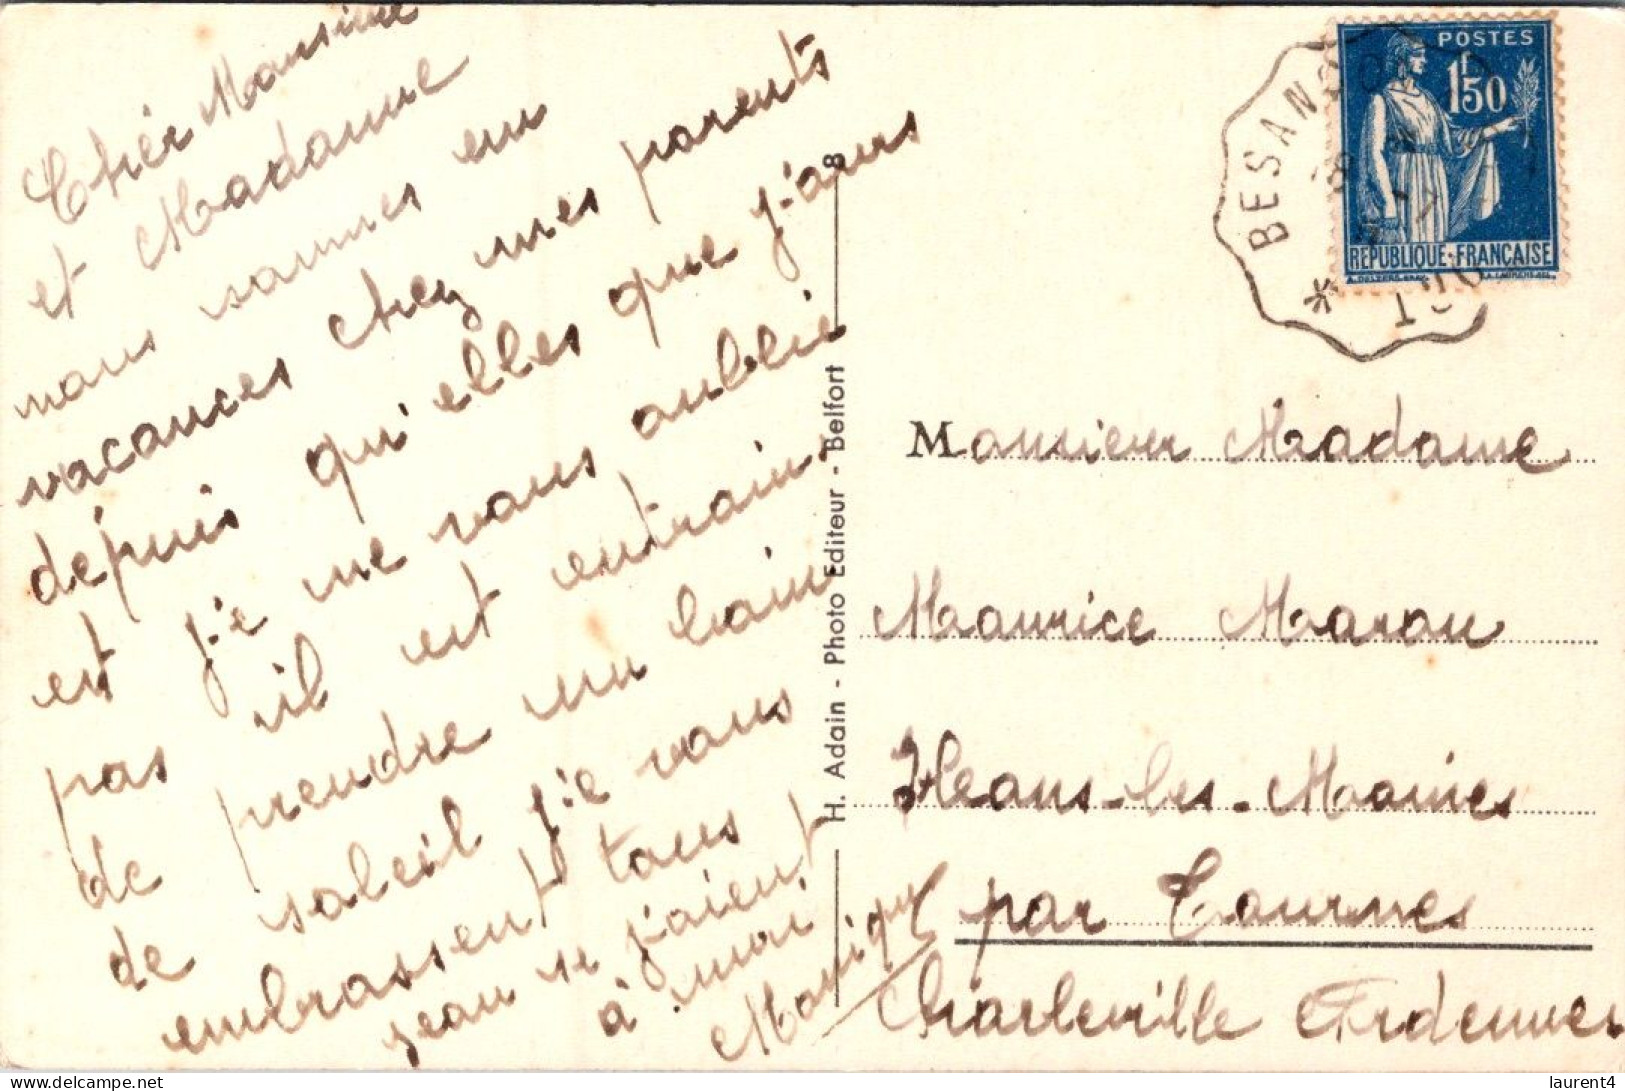 Chér Monsieur
et Madame
nous sommes en
vacances chez mes parents
dépuis qu'elles que j'ours
est j'e ne vous oublie
pas il est entrain
de prendre un bain
de soleil j'e vous
embrassent tous
jean se j'oient
à moi
Monique
H. Adain - Photo Editeur - Belfort
8
BESANÇON
POSTES
1f50
REPUBLIQUE·FRANÇAISE
Monsieur Madame
Maurice Maron
Heans-les-Moines
par Tournes
Charleville Ardennes
laurent4